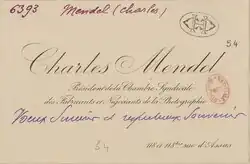 6393 Mendel (Charles)
54
Charles Mendel
Président de la Chambre Syndicale
des Fabricants et Négociants de la Photographie
Vœux Sincères et respectueux Souvenir
54
118 & 118bis rue d'Assas